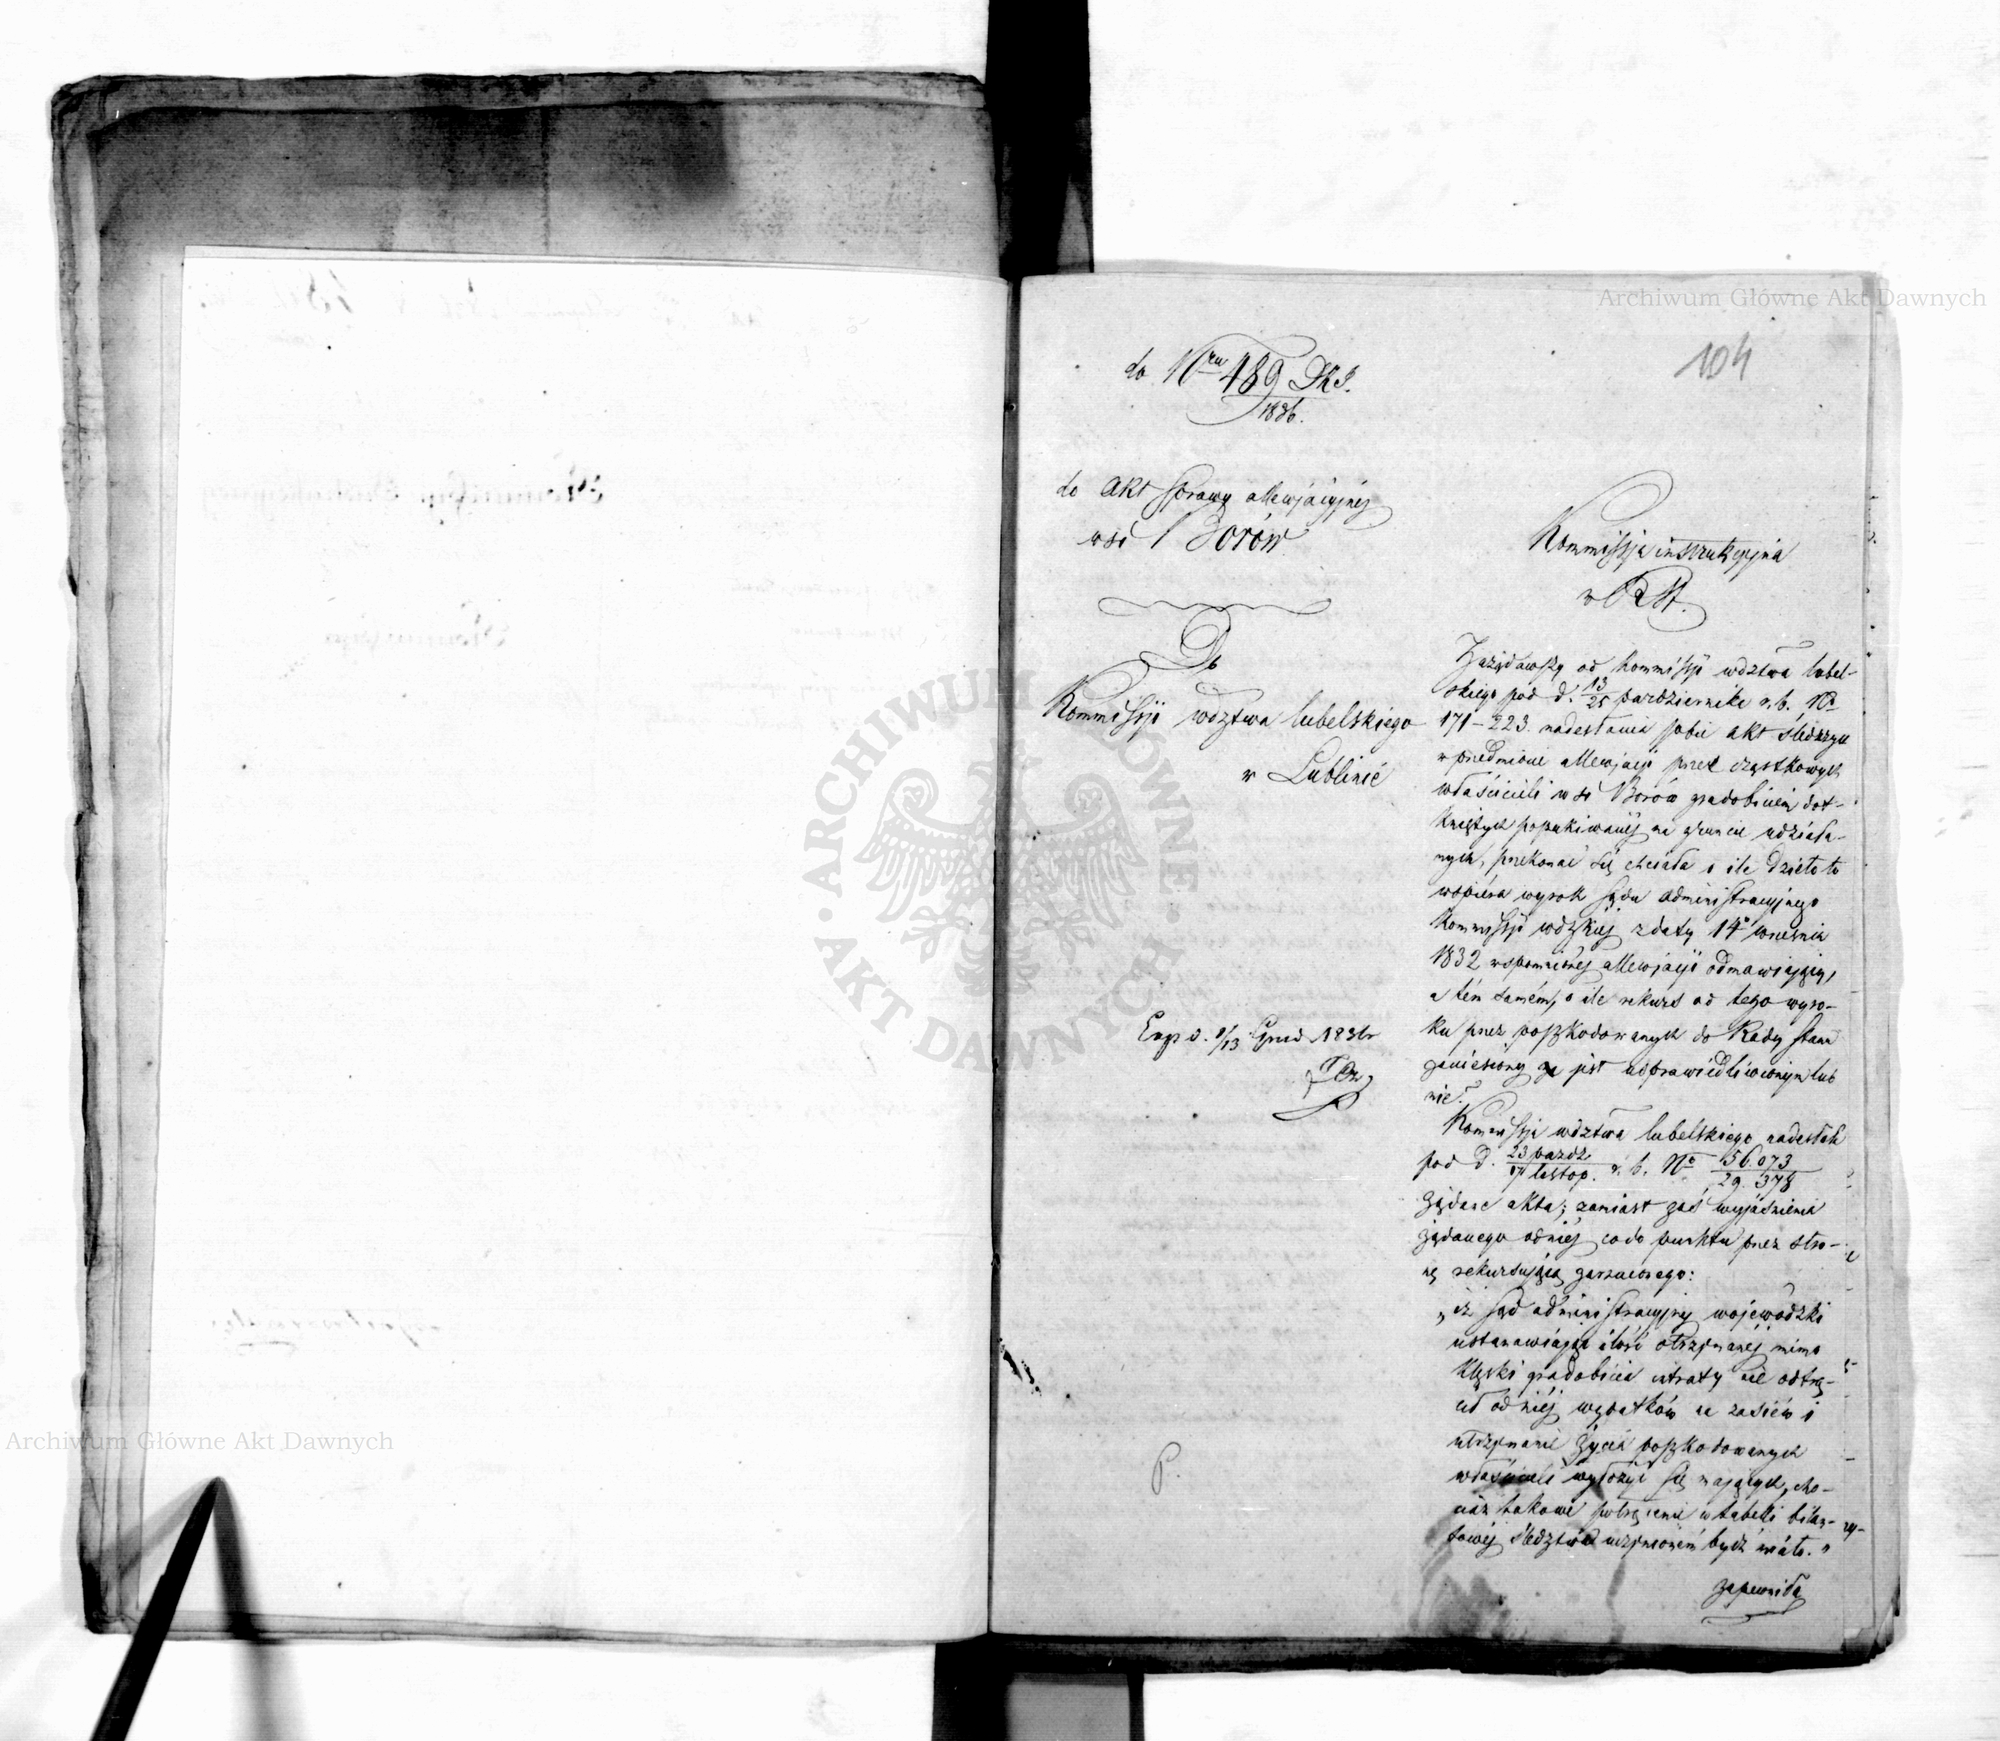 Archiwum Główne Akt Dawnych
104
do Nru 489 DKI.
1836.
do Akt sprawy allewjacyjnej
wsi Borów
Do
Kommissji wdztwa lubelskiego
w Lublinie
Exp d. 1/13 Grud 1836
P.
Kommissja instrukcyjna
w RSt.
Zażądawszy od Kommissji wdztwa lubel-
skiego pod d. 13/25 października r. b. No
171-223. nadesłania sobie akt śledztw
w przedmiocie allewjacji przez cząstkowych
właścicieli wsi Borów gradobiciem dot-
kniętych poszukiwanéj na gruncie udziała-
nych, przekonać się chciała o ile dzieło to
wspiera wyrok sądu administracyjnego
Kommissji wdzkiej z daty 14o września
1832 wspomnionéj allewjacji odmawiający,
a tém samém, o ile rekurs od tego wyro-
ku przez poszkodowanych do Rady stanu
zaniesiony jest usprawiedliwionym lub
nie.
Kommissja wdztwa lubelskiego nadesłała
pod d. 23 paźdz./4 listop. r. b. No 56.073/29.378
żądane akta; zamiast zaś wyjaśnienia
żądanego od niéj co do punktu przez stro-
nę rekursującą zarzuconego:
„iż sąd administracyjny wojewódzki
ustanawiając ilość otrzymanej mimo
klęski gradobicia intraty nie odtrą-
cił od niéj wydatków na zasiew i
utrzymanie życia poszkodowanych
właścicieli wyłożyć się mających, cho-
ciaż takowe potrącenie w tabelli bilan-
sowéj śledztwa uczynioném być miało."
zapewniła
Archiwum Główne Akt Dawnych
ARCHIWUM GŁÓWNE AKT DAWNYCH